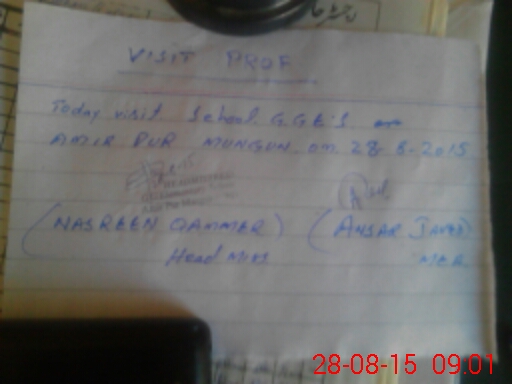 رجسٹر
VISIT PROF
Today visit School G.G.E.S
AMIR PUR MUNGUN on 28-8-2015
HEADMISTRESS
(NASREEN QAMMER) (AHSAN JAVED)
Head Miss MEA
28-08-15 09.01